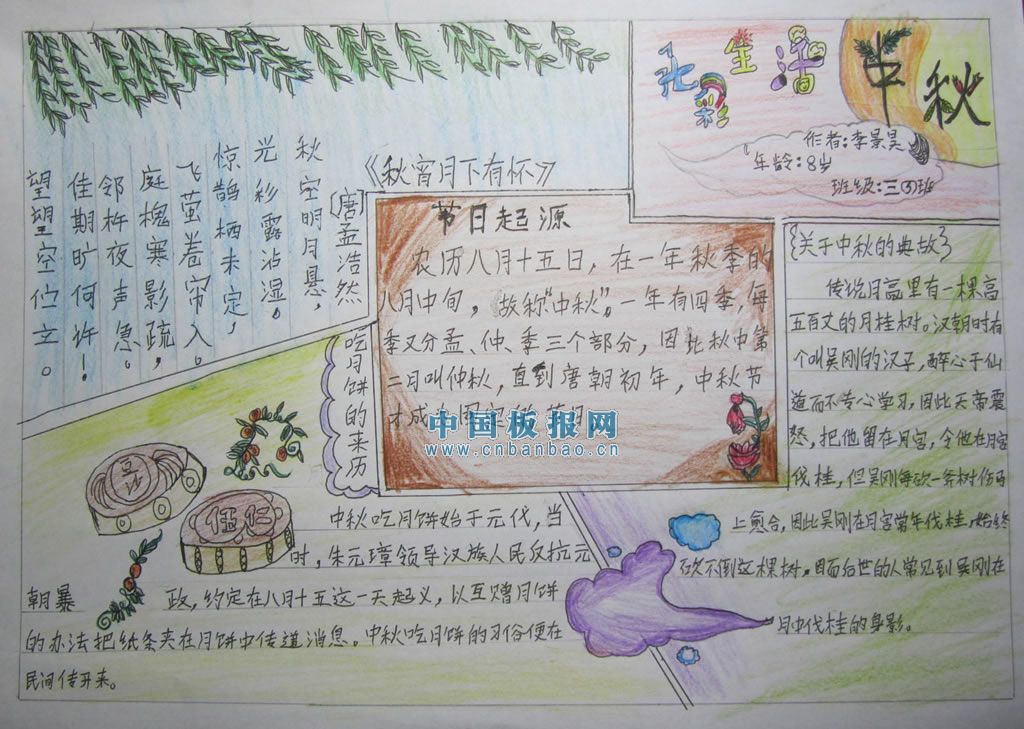 七彩生活
中秋
作者:李景昊
年龄:8岁
班级:三③班
《秋宵月下有怀》
〔唐〕孟浩然
秋空明月悬,
光彩露沾湿。
惊鹊栖未定,
飞萤卷帘入。
庭槐寒影疏,
邻杵夜声急。
佳期旷何许!
望望空伫立。
节日起源
农历八月十五日,在一年秋季的
八月中旬,故称“中秋”。一年有四季,每
季又分孟、仲、季三个部分,因此秋中第
二月叫仲秋,直到唐朝初年,中秋节
才成
中国板报网
www.cnbanbao.cn
{关于中秋的典故}
传说月宫里有一棵高
五百丈的月桂树。汉朝时有
个叫吴刚的汉子,醉心于仙
道而不专心学习,因此天帝震
怒,把他留在月宫,令他在月宫
伐桂,但吴刚每砍一斧树伤马
上愈合,因此吴刚在月宫常年伐桂,始终
砍不倒这棵树。因而后世的人常见到吴刚在
月中伐桂的身影。
吃月饼的来历
豆沙
伍仁
中秋吃月饼始于元代,当
时,朱元璋领导汉族人民反抗元
朝暴 政,约定在八月十五这一天起义,以互赠月饼
的办法把纸条夹在月饼中传道消息。中秋吃月饼的习俗便在
民间传开来。